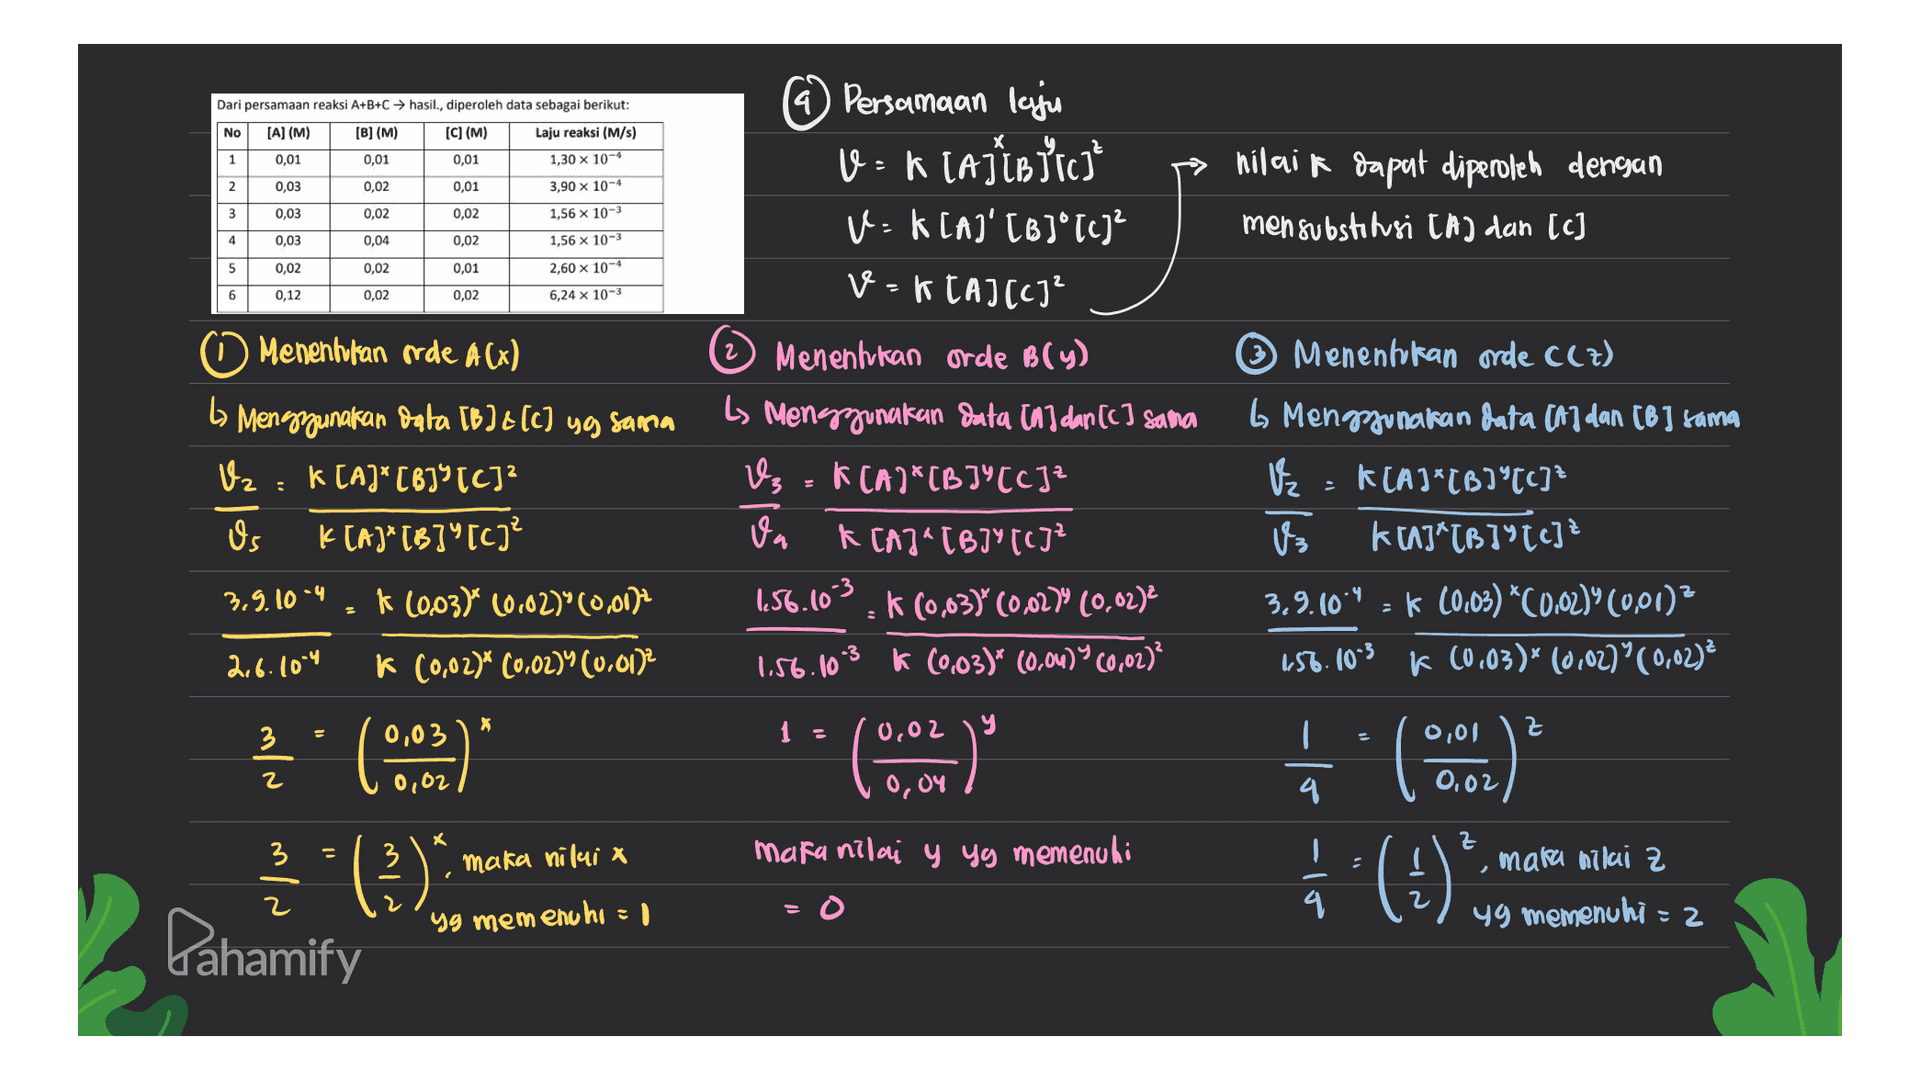 Dari persamaan reaksi A+B+C → hasil., diperoleh data sebagai berikut:
No [A] (M) [B] (M) [C] (M) Laju reaksi (M/s)
1 0,01 0,01 0,01 1,30 × 10⁻⁴
2 0,03 0,02 0,01 3,90 × 10⁻⁴
3 0,03 0,02 0,02 1,56 × 10⁻³
4 0,03 0,04 0,02 1,56 × 10⁻³
5 0,02 0,02 0,01 2,60 × 10⁻⁴
6 0,12 0,02 0,02 6,24 × 10⁻³
④ Persamaan laju
v = k [A]ˣ[B]ʸ[C]ᶻ
v = k [A]¹ [B]⁰ [C]²
v = k [A][C]²
→ nilai k dapat diperoleh dengan
mensubstitusi [A] dan [C]
① Menentukan orde A(x)
↳ Menggunakan data [B] & [C] yg sama
v₂ = k [A]ˣ [B]ʸ [C]ᶻ
v₅ k [A]ˣ [B]ʸ [C]ᶻ
3,9.10⁻⁴ = k (0,03)ˣ (0,02)ʸ (0,01)ᶻ
2,6.10⁻⁴ k (0,02)ˣ (0,02)ʸ (0,01)ᶻ
3 = (0,03)ˣ
2 0,02
3 = (3)ˣ, maka nilai x
2 2 yg memenuhi = 1
② Menentukan orde B(y)
↳ Menggunakan data [A] dan [C] sama
v₃ = k [A]ˣ [B]ʸ [C]ᶻ
v₄ k [A]ˣ [B]ʸ [C]ᶻ
1,56.10⁻³ = k (0,03)ˣ (0,02)ʸ (0,02)ᶻ
1,56.10⁻³ k (0,03)ˣ (0,04)ʸ (0,02)ᶻ
1 = (0,02)ʸ
0,04
maka nilai y yg memenuhi
= 0
③ Menentukan orde C(z)
↳ Menggunakan data [A] dan [B] sama
v₂ = k [A]ˣ [B]ʸ [C]ᶻ
v₃ k [A]ˣ [B]ʸ [C]ᶻ
3,9.10⁻⁴ = k (0,03)ˣ (0,02)ʸ (0,01)ᶻ
1,56.10⁻³ k (0,03)ˣ (0,02)ʸ (0,02)ᶻ
1 = (0,01)ᶻ
4 0,02
1 = (1)ᶻ, maka nilai z
4 2 yg memenuhi = 2
Pahamify